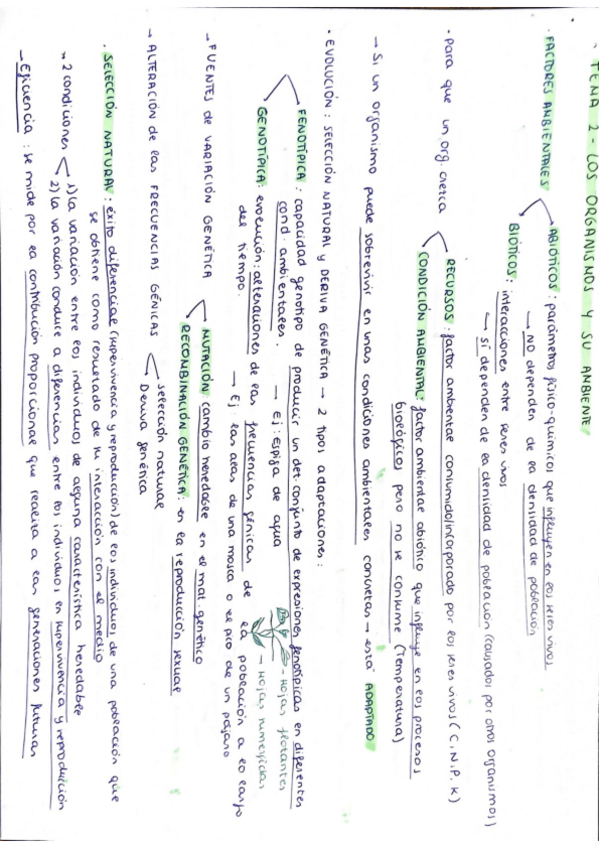 · TEMA 2 - LOS ORGANISMOS Y SU AMBIENTE
· FACTORES AMBIENTALES
ABIÓTICOS: parámetros físico-químicos que influyen en los seres vivos
→ NO dependen de la densidad de población
BIÓTICOS: interacciones entre seres vivos
→ SÍ dependen de la densidad de población (causados por otros organismos)
· Para que un org. crezca
RECURSOS: factor ambiental consumido/incorporado por los seres vivos (C, N, P, K)
CONDICIÓN AMBIENTAL: factor ambiental abiótico que influye en los procesos
biológicos pero no se consume (Temperatura)
→ Si un organismo puede sobrevivir en unas condiciones ambientales concretas → está ADAPTADO
· EVOLUCIÓN: SELECCIÓN NATURAL y DERIVA GENÉTICA → 2 tipos adaptaciones:
FENOTÍPICA: capacidad genotipo de producir un det. conjunto de expresiones fenotípicas en diferentes
cond. ambientales. → Ej: Espiga de agua
→ Hojas flotantes
→ Hojas sumergidas
GENOTÍPICA: evolución: alteraciones de las frecuencias génicas de la población a lo largo
del tiempo. → Ej: las alas de una mosca o el pico de un pájaro
- FUENTES de VARIACIÓN GENÉTICA
MUTACIÓN: cambio heredable en el mat. genético
RECOMBINACIÓN GENÉTICA: en la reproducción sexual
→ ALTERACIÓN de las FRECUENCIAS GÉNICAS
selección natural
Deriva genética
· SELECCIÓN NATURAL: éxito diferencial (supervivencia y reproducción) de los individuos de una población que
se obtiene como resultado de su interacción con el medio
→ 2 condiciones
1) La variación entre los individuos de alguna característica heredable
2) La variación conduce a diferencias entre los individuos en supervivencia y reproducción
→ Eficiencia: se mide por la contribución proporcional que realiza a las generaciones futuras